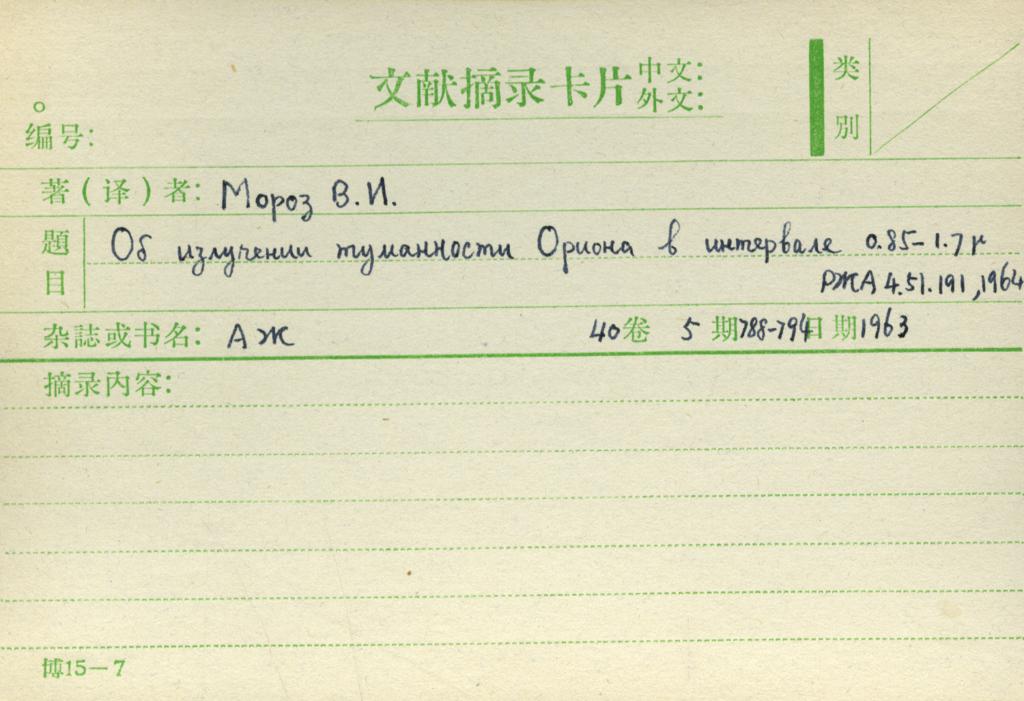 文献摘录卡片 中文:
外文:
类別
编号:
著(译)者: Мороз В.И.
題目 Об излучении туманности Ориона в интервале 0.85-1.7μ
РЖА 4.51.191,1964
杂誌或书名: АЖ 40卷 5期788-794日期1963
摘录内容:
博15—7